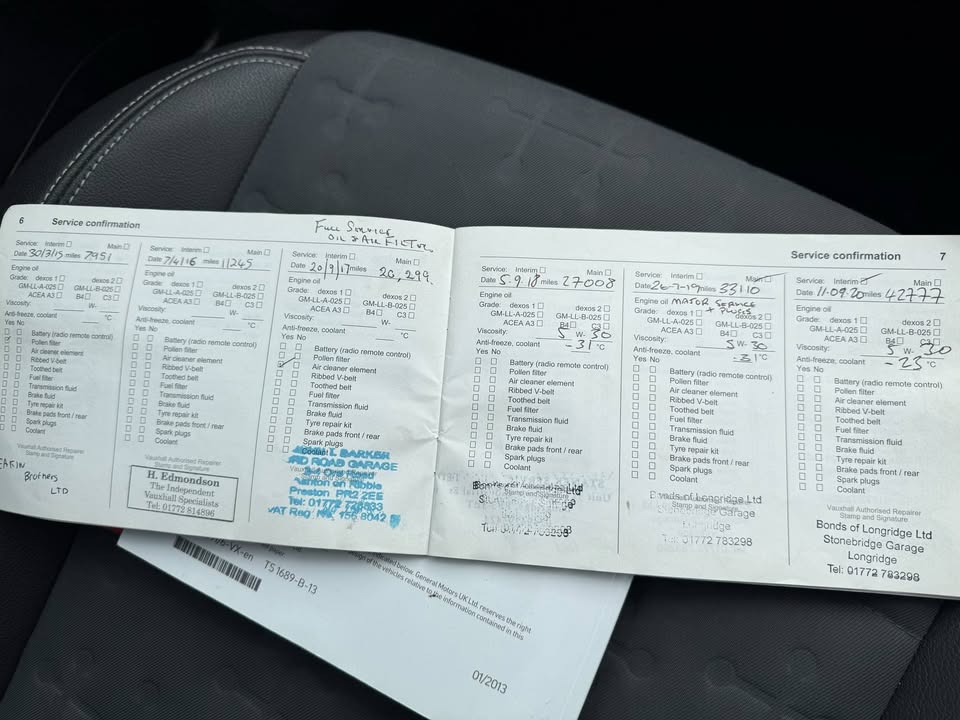 6 Service confirmation
Full Service
OIL & AIR FILTER
Service: Interim Main
Date 30/3/15 miles 7951
Engine oil
Grade: dexos 1 dexos 2
GM-LL-A-025 GM-LL-B-025
ACEA A3 B4 C3
Viscosity: W-
Anti-freeze, coolant °C
Yes No
Battery (radio remote control)
Pollen filter
Air cleaner element
Ribbed V-belt
Toothed belt
Fuel filter
Transmission fluid
Brake fluid
Tyre repair kit
Brake pads front / rear
Spark plugs
Coolant
Vauxhall Authorised Repairer
Stamp and Signature
EAKIN
Brothers
LTD
Service: Interim Main
Date 7/4/16 miles 11245
Engine oil
Grade: dexos 1 dexos 2
GM-LL-A-025 GM-LL-B-025
ACEA A3 B4 C3
Viscosity: W-
Anti-freeze, coolant °C
Yes No
Battery (radio remote control)
Pollen filter
Air cleaner element
Ribbed V-belt
Toothed belt
Fuel filter
Transmission fluid
Brake fluid
Tyre repair kit
Brake pads front / rear
Spark plugs
Coolant
Vauxhall Authorised Repairer
Stamp and Signature
H. Edmondson
The Independent
Vauxhall Specialists
Tel: 01772 814896
Service: Interim Main
Date 20/9/17 miles 20,299
Engine oil
Grade: dexos 1 dexos 2
GM-LL-A-025 GM-LL-B-025
ACEA A3 B4 C3
Viscosity: W-
Anti-freeze, coolant °C
Yes No
Battery (radio remote control)
Pollen filter
Air cleaner element
Ribbed V-belt
Toothed belt
Fuel filter
Transmission fluid
Brake fluid
Tyre repair kit
Brake pads front / rear
Spark plugs
Coolant
BARKER
ROAD ROAD GARAGE
Road
on Ribble
Preston PR2 2EE
Tel: 01772
VAT Reg No. 156 8042
Service confirmation 7
Service: Interim Main
Date 5.9.18 miles 27008
Engine oil
Grade: dexos 1 dexos 2
GM-LL-A-025 GM-LL-B-025
ACEA A3 B4 C3
Viscosity: 5 W- 30
Anti-freeze, coolant -31 °C
Yes No
Battery (radio remote control)
Pollen filter
Air cleaner element
Ribbed V-belt
Toothed belt
Fuel filter
Transmission fluid
Brake fluid
Tyre repair kit
Brake pads front / rear
Spark plugs
Coolant
Stamp and Signature
Service: Interim Main
Date 26-7-19 miles 33110
Engine oil MAJOR SERVICE
+ PLUGS
Grade: dexos 1 dexos 2
GM-LL-A-025 GM-LL-B-025
ACEA A3 B4 C3
Viscosity: 5 W- 30
Anti-freeze, coolant -31 °C
Yes No
Battery (radio remote control)
Pollen filter
Air cleaner element
Ribbed V-belt
Toothed belt
Fuel filter
Transmission fluid
Brake fluid
Tyre repair kit
Brake pads front / rear
Spark plugs
Coolant
Bonds of Longridge Ltd
Stamp and Signature
Garage
Longridge
Tel: 01772 783298
Service: Interim Main
Date 11-09.20 miles 42777
Engine oil
Grade: dexos 1 dexos 2
GM-LL-A-025 GM-LL-B-025
ACEA A3 B4 C3
Viscosity: 5 W- 30
Anti-freeze, coolant -23 °C
Yes No
Battery (radio remote control)
Pollen filter
Air cleaner element
Ribbed V-belt
Toothed belt
Fuel filter
Transmission fluid
Brake fluid
Tyre repair kit
Brake pads front / rear
Spark plugs
Coolant
Vauxhall Authorised Repairer
Stamp and Signature
Bonds of Longridge Ltd
Stonebridge Garage
Longridge
Tel: 01772 783298
-VX-en
TS 1689-B-13
indicated below. General Motors UK Ltd. reserves the right
design of the vehicles relative to the information contained in this
01/2013